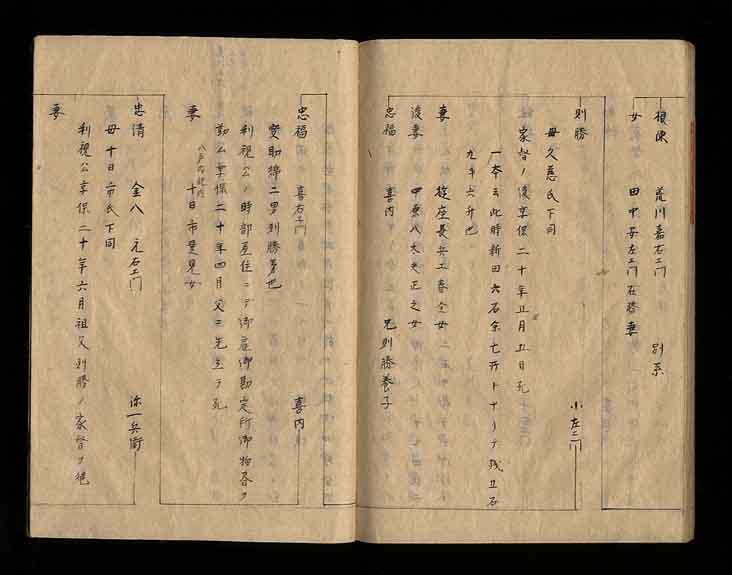 根陳 荒川嘉右エ門 別系
女 田中安左エ門在勝妻
則勝 小左エ門
母久慈氏下同
家督ノ後享保二十年五月五日死
一本云此時新田六石余七斤トナリテ残五石
九斗六升也
妻 長兵エ春全女
後妻 中原八太夫正之女
忠福 喜内 兄則勝養子
忠福 喜右エ門 喜内
二男則勝弟也
利視公ノ時部屋住ニテ御蔵御勘定所御物書ヲ
勤ム享保二十年四月父ニ先立テ死
妻 八戸御家内 十日市 女
忠清 金八 元右エ門 弥一兵衛
母十日市氏下同
利視公享保二十年六月祖父則勝ノ家督ヲ襲
妻